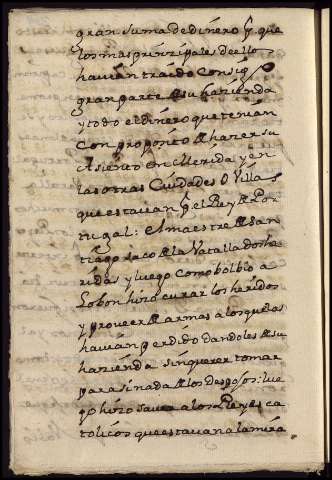 gran suma de dinero pr. que
los mas prinzipales de ello
havian traido consigo
gran parte de su hazienda
y todo el dinero que tenian
con proposito de hazer su
Asiento en Merida y en
las otras Ciudades o Villas
que estavan pr. el Rey de Por
tugal: el maestre de San
tiago saco de la Vatalla dos he
ridas y luego como bolbio a
Lobon hizo curar los heridos
y proveer de armas a los que las
havian perdido dandoles de su
hazienda sin querer tomar
para si nada de los despojos: lue
go hizo saver a los Reyes ca
tolicos que estavan a la mira